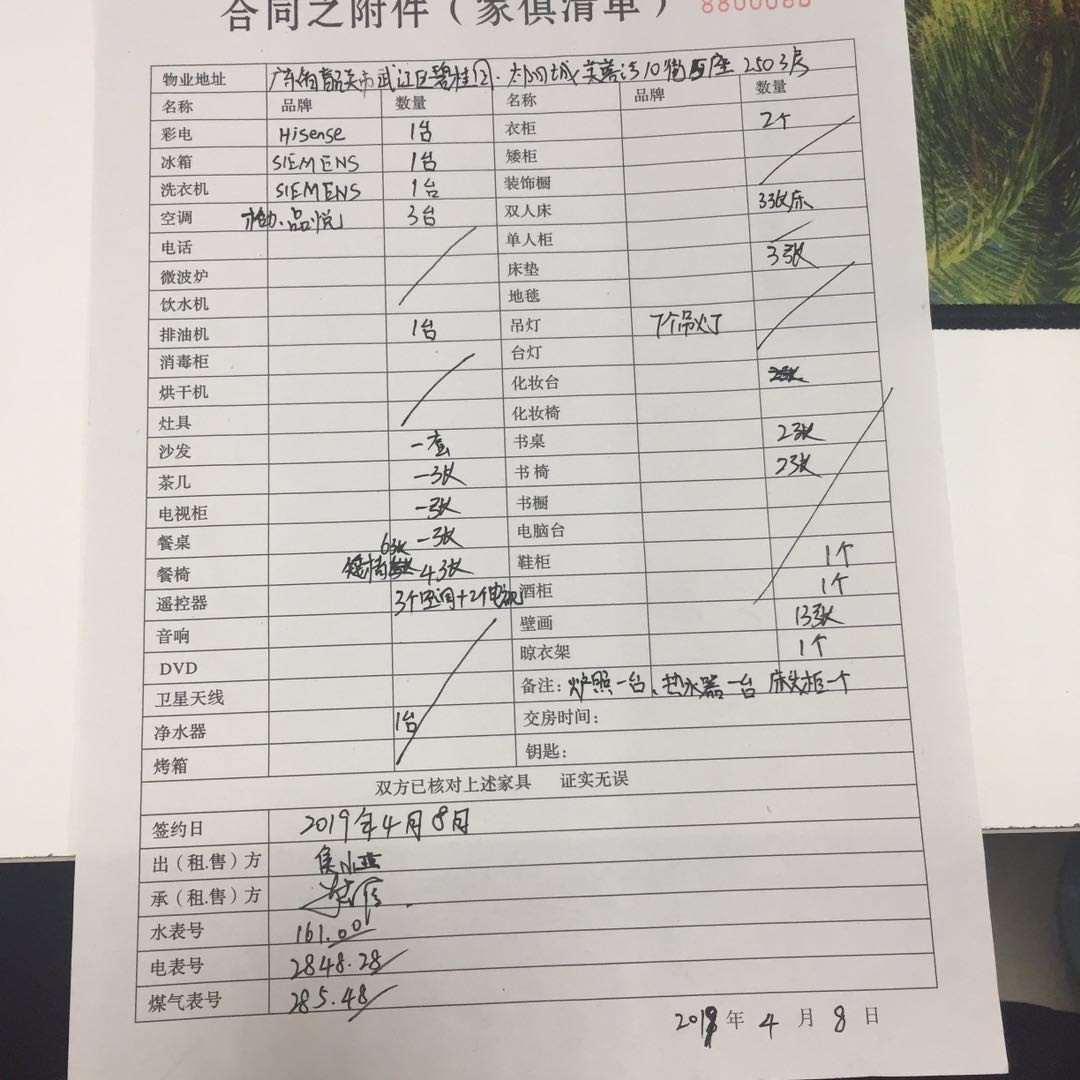 合同之附件（家俱清单） 8800086
物业地址 广东省韶关市武江区碧桂园·太阳城芙蓉湾10街 座2503房
名称 品牌 数量 名称 品牌 数量
彩电 Hisense 1台 衣柜 2个
冰箱 SIEMENS 1台 矮柜
洗衣机 SIEMENS 1台 装饰橱
空调 品悦 3台 双人床 3张床
电话 单人柜
微波炉 床垫 3张
饮水机 地毯
排油机 1台 吊灯 7个吊灯
消毒柜 台灯
烘干机 化妆台
灶具 化妆椅
沙发 一套 书桌 2张
茶几 一张 书椅 2张
电视柜 一张 书橱
餐桌 一张 电脑台
餐椅 6张 矮椅 4张 鞋柜 1个
遥控器 3个空调+2个电视 酒柜 1个
音响 壁画 13张
DVD 晾衣架 1个
卫星天线 备注：炉照一台、热水器一台 床头柜一个
净水器 1台 交房时间：
烤箱 钥匙：
双方已核对上述家具 证实无误
签约日 2019年4月8日
出（租.售）方
承（租.售）方
水表号 161.00
电表号 2848.28
煤气表号 285.48
2019年 4 月 8 日